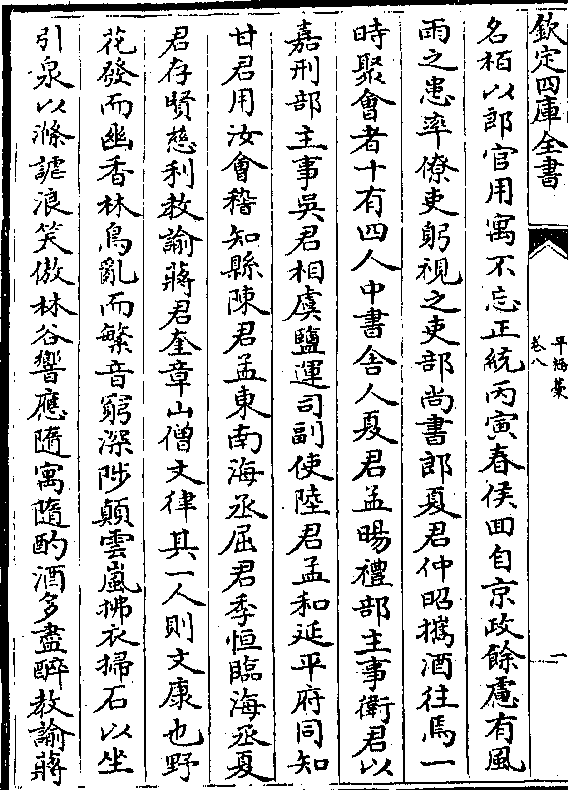 欽定四庫全書
平橋藁
卷八
一
名栢以郎官用寓不忘正統丙寅春侯回自京政餘慮有風
雨之患率僚吏躬視之吏部尚書郎夏君仲昭攜酒往焉一
時聚會者十有四人中書舍人夏君孟暘禮部主事衛君以
嘉刑部主事吳君相虞鹽運司副使陸君孟和延平府同知
甘君用汝會稽知縣陳君孟東南海丞屈君季恒臨海丞夏
君存賢慈利教諭蔣君奎章山僧文律其一人則文康也野
花發而幽香林鳥亂而繁音窮深陟顛雲嵐拂衣掃石以坐
引泉以滌謔浪笑傲林谷響應隨寓隨酌酒多盡醉教諭蔣